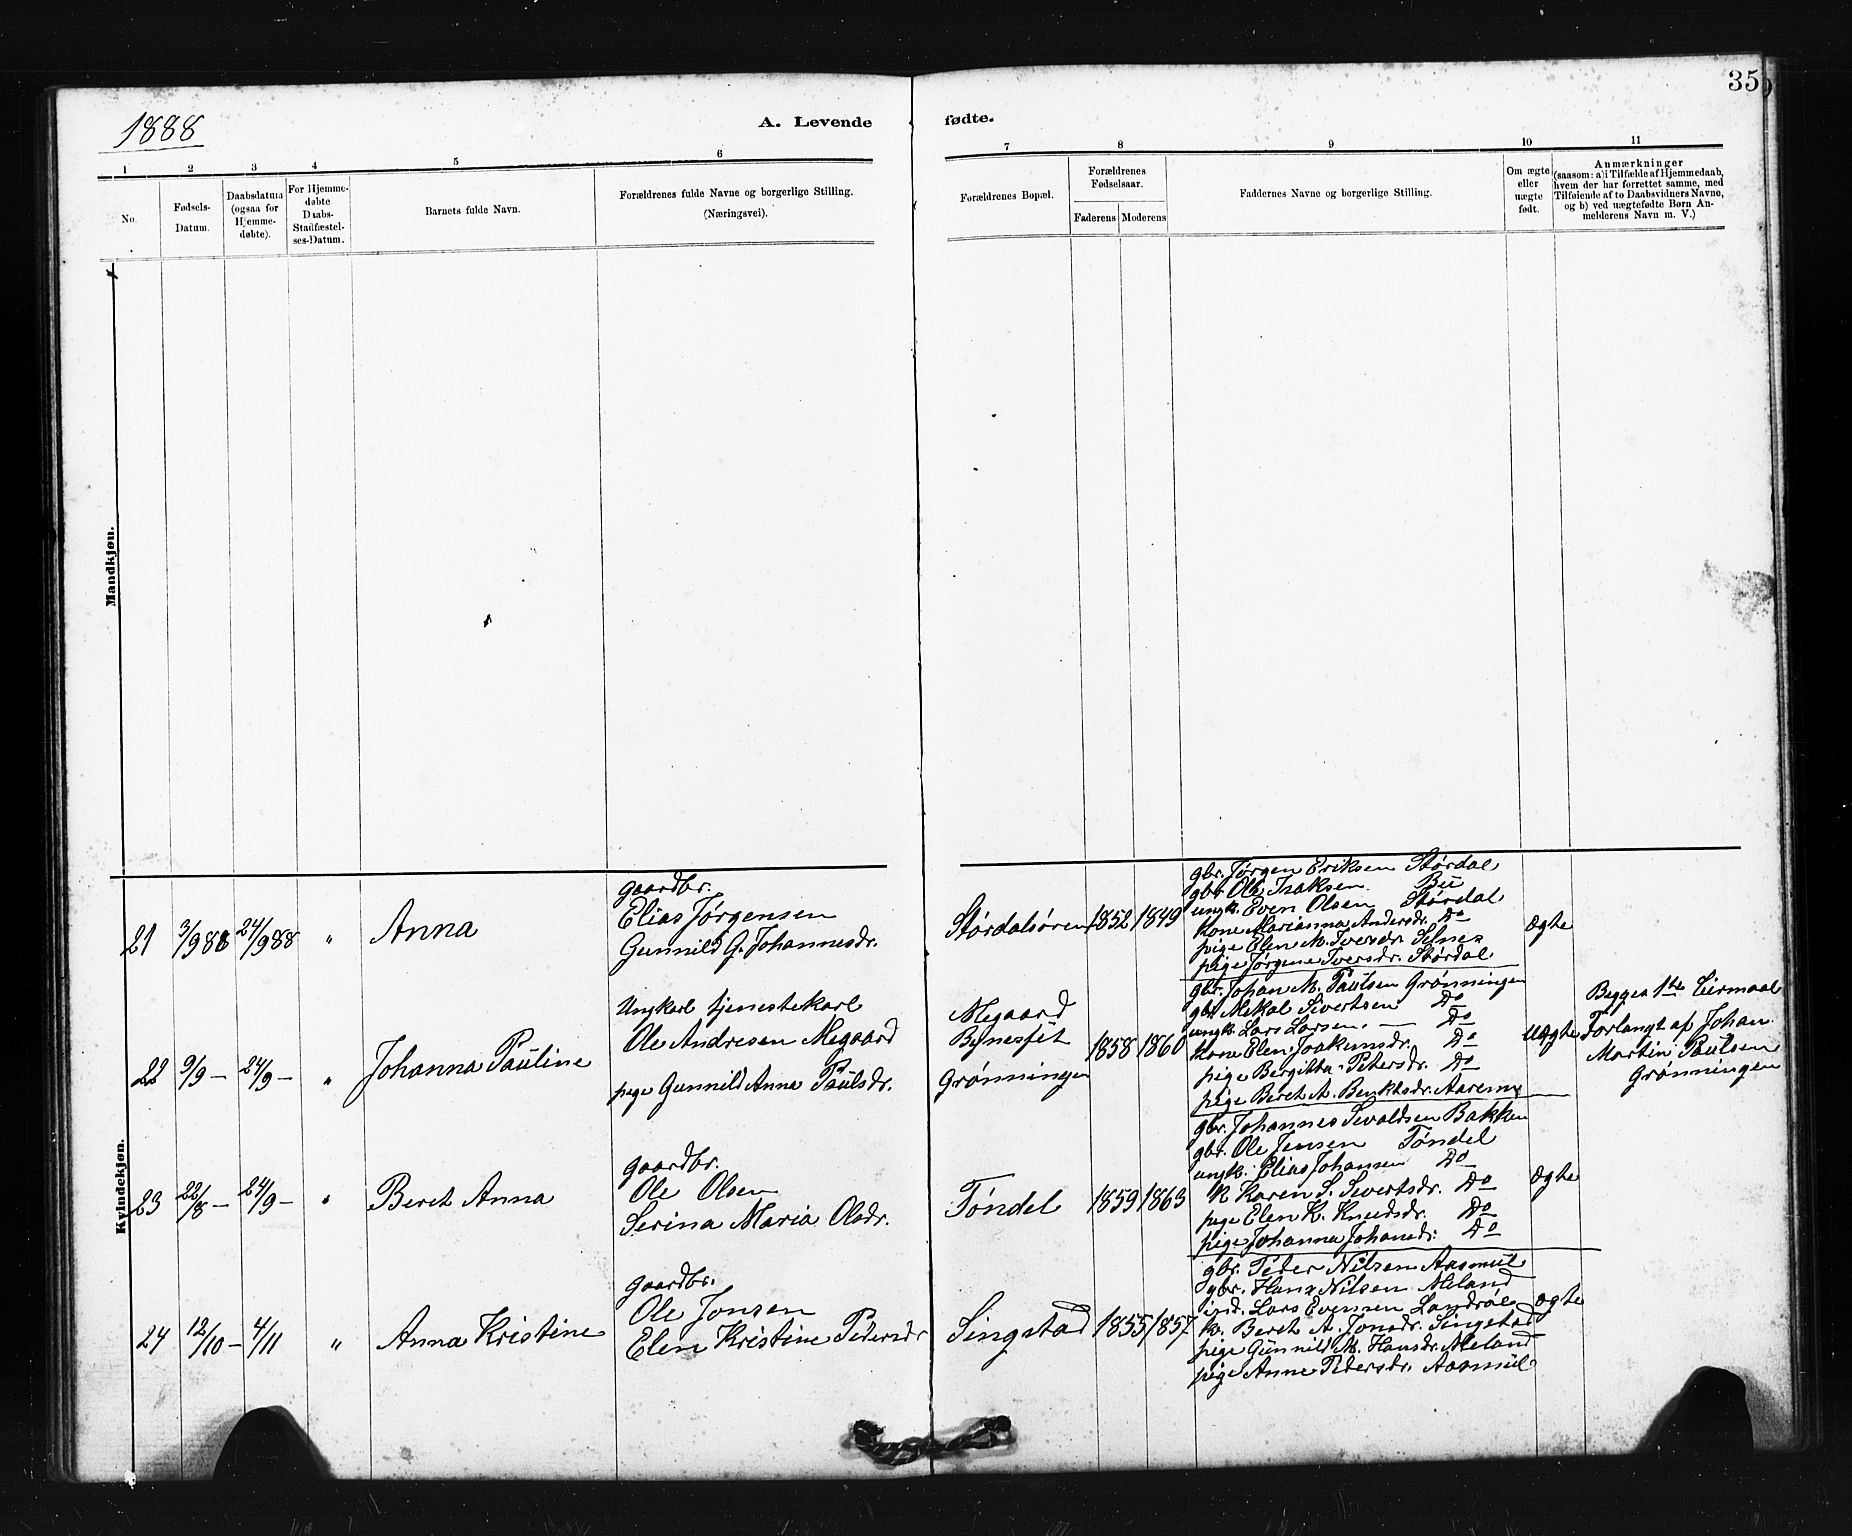 35
1888
A. Levende fødte.
1 2 3 4 5 6 7 8 9 10 11
No.
Fødsels-Datum.
Daabsdatum (ogsaa for Hjemme-døbte).
For Hjemme-døbte Daabs-Stadfæstel-ses-Datum.
Barnets fulde Navn.
Forældrenes fulde Navne og borgerlige Stilling.
(Næringsvei).
Forældrenes Bopæl.
Forældrenes Fødselsaar.
Faderens Moderens
Faddernes Navne og borgerlige Stilling.
Om ægte eller uægte født.
Anmærkninger
(saasom: a) i Tilfælde af Hjemmedaab,
hvem der har forrettet samme, med
Tilføiende af to Daabsvidners Navne,
og b) ved uægtefødte Børn An-
melderens Navn m. V.)
Mandkjøn.
Kvindekjøn.
21 3/9 88 24/9 88 " Anna
gaardbr.
Elias Jørgensen
Gunnild G. Johannesdr.
Størdalsøren 1852 1849
gbr. Jørgen Eriksen Størdal
gbr Ole Isaksen Bü
ungk. Even Olsen Størdal
kone Marianna Andersdr. Do
pige Elen M. Iversdr. Selnes
pige Jørgine Iversdr. Størdal
Ægte
22 9/9 – 24/9 – " Johanna Pauline
Ungkarl tjenestekarl
Ole Andresen Megaard
pige Gunnild Anna Paulsdr.
Megaard
Bynesset
Grønningen
1858 1860
gbr. Johan M. Paulsen Grønningen
gbr Mekal Sivertsen Do
ungk. Lars Larsen. — Do
kone Elen Joakimsdr. Do
pige Bergitta Petersdr. Do
pige Beret A. Benktsdr. Aarenne
Uægte
Begges 1ste Leirmaal
Forlangt af Johan
Martin Paulsen
Grønningen
23 22/8 – 24/9 – " Beret Anna
gaardbr.
Ole Olsen
Serina Maria Olsdr.
Tøndel 1859 1863
gbr. Johannes Sivaldsen Bakken
gbr. Ole Jensen Tøndel
ungk. Elias Johansen Do
k Karen S. Sivertsdr. Do
pige Elen K. Knudsdr. Do
pige Johanna Johansdr. Do
Ægte
24 12/10 – 4/11 " Anna Kristine
gaardbr.
Ole Jonsen
Elen Kristine Pedersdr
Singstad 1855 1857
gbr. Peder Nilsen Aasmul
gbr. Hans Nilsen Meland
ind. Lars Evensen Landrøe
k. Beret A. Jonsdr. Singstad
pige Gunnild M. Hansdr. Meland
pige Anne Pedersdr. Aasmul
Ægte